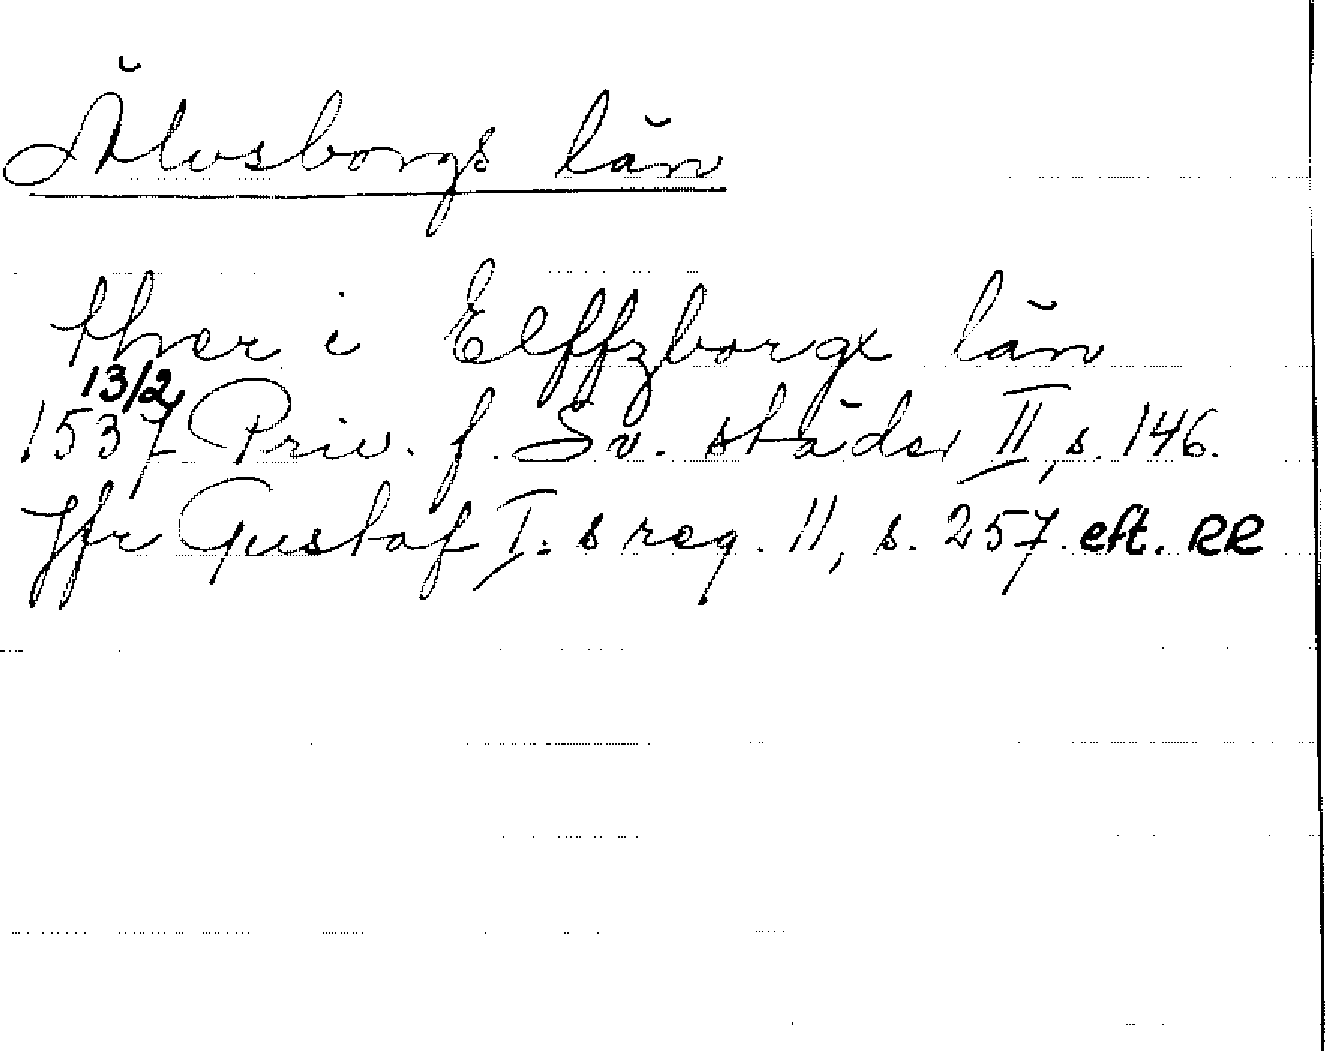 Älvsborgs län
ther i Elffzborgx län
13/2
1537 Priv. f. Sv. städer II, s. 146.
Jfr Gustaf I:s reg. 11, s. 257. eft. RR